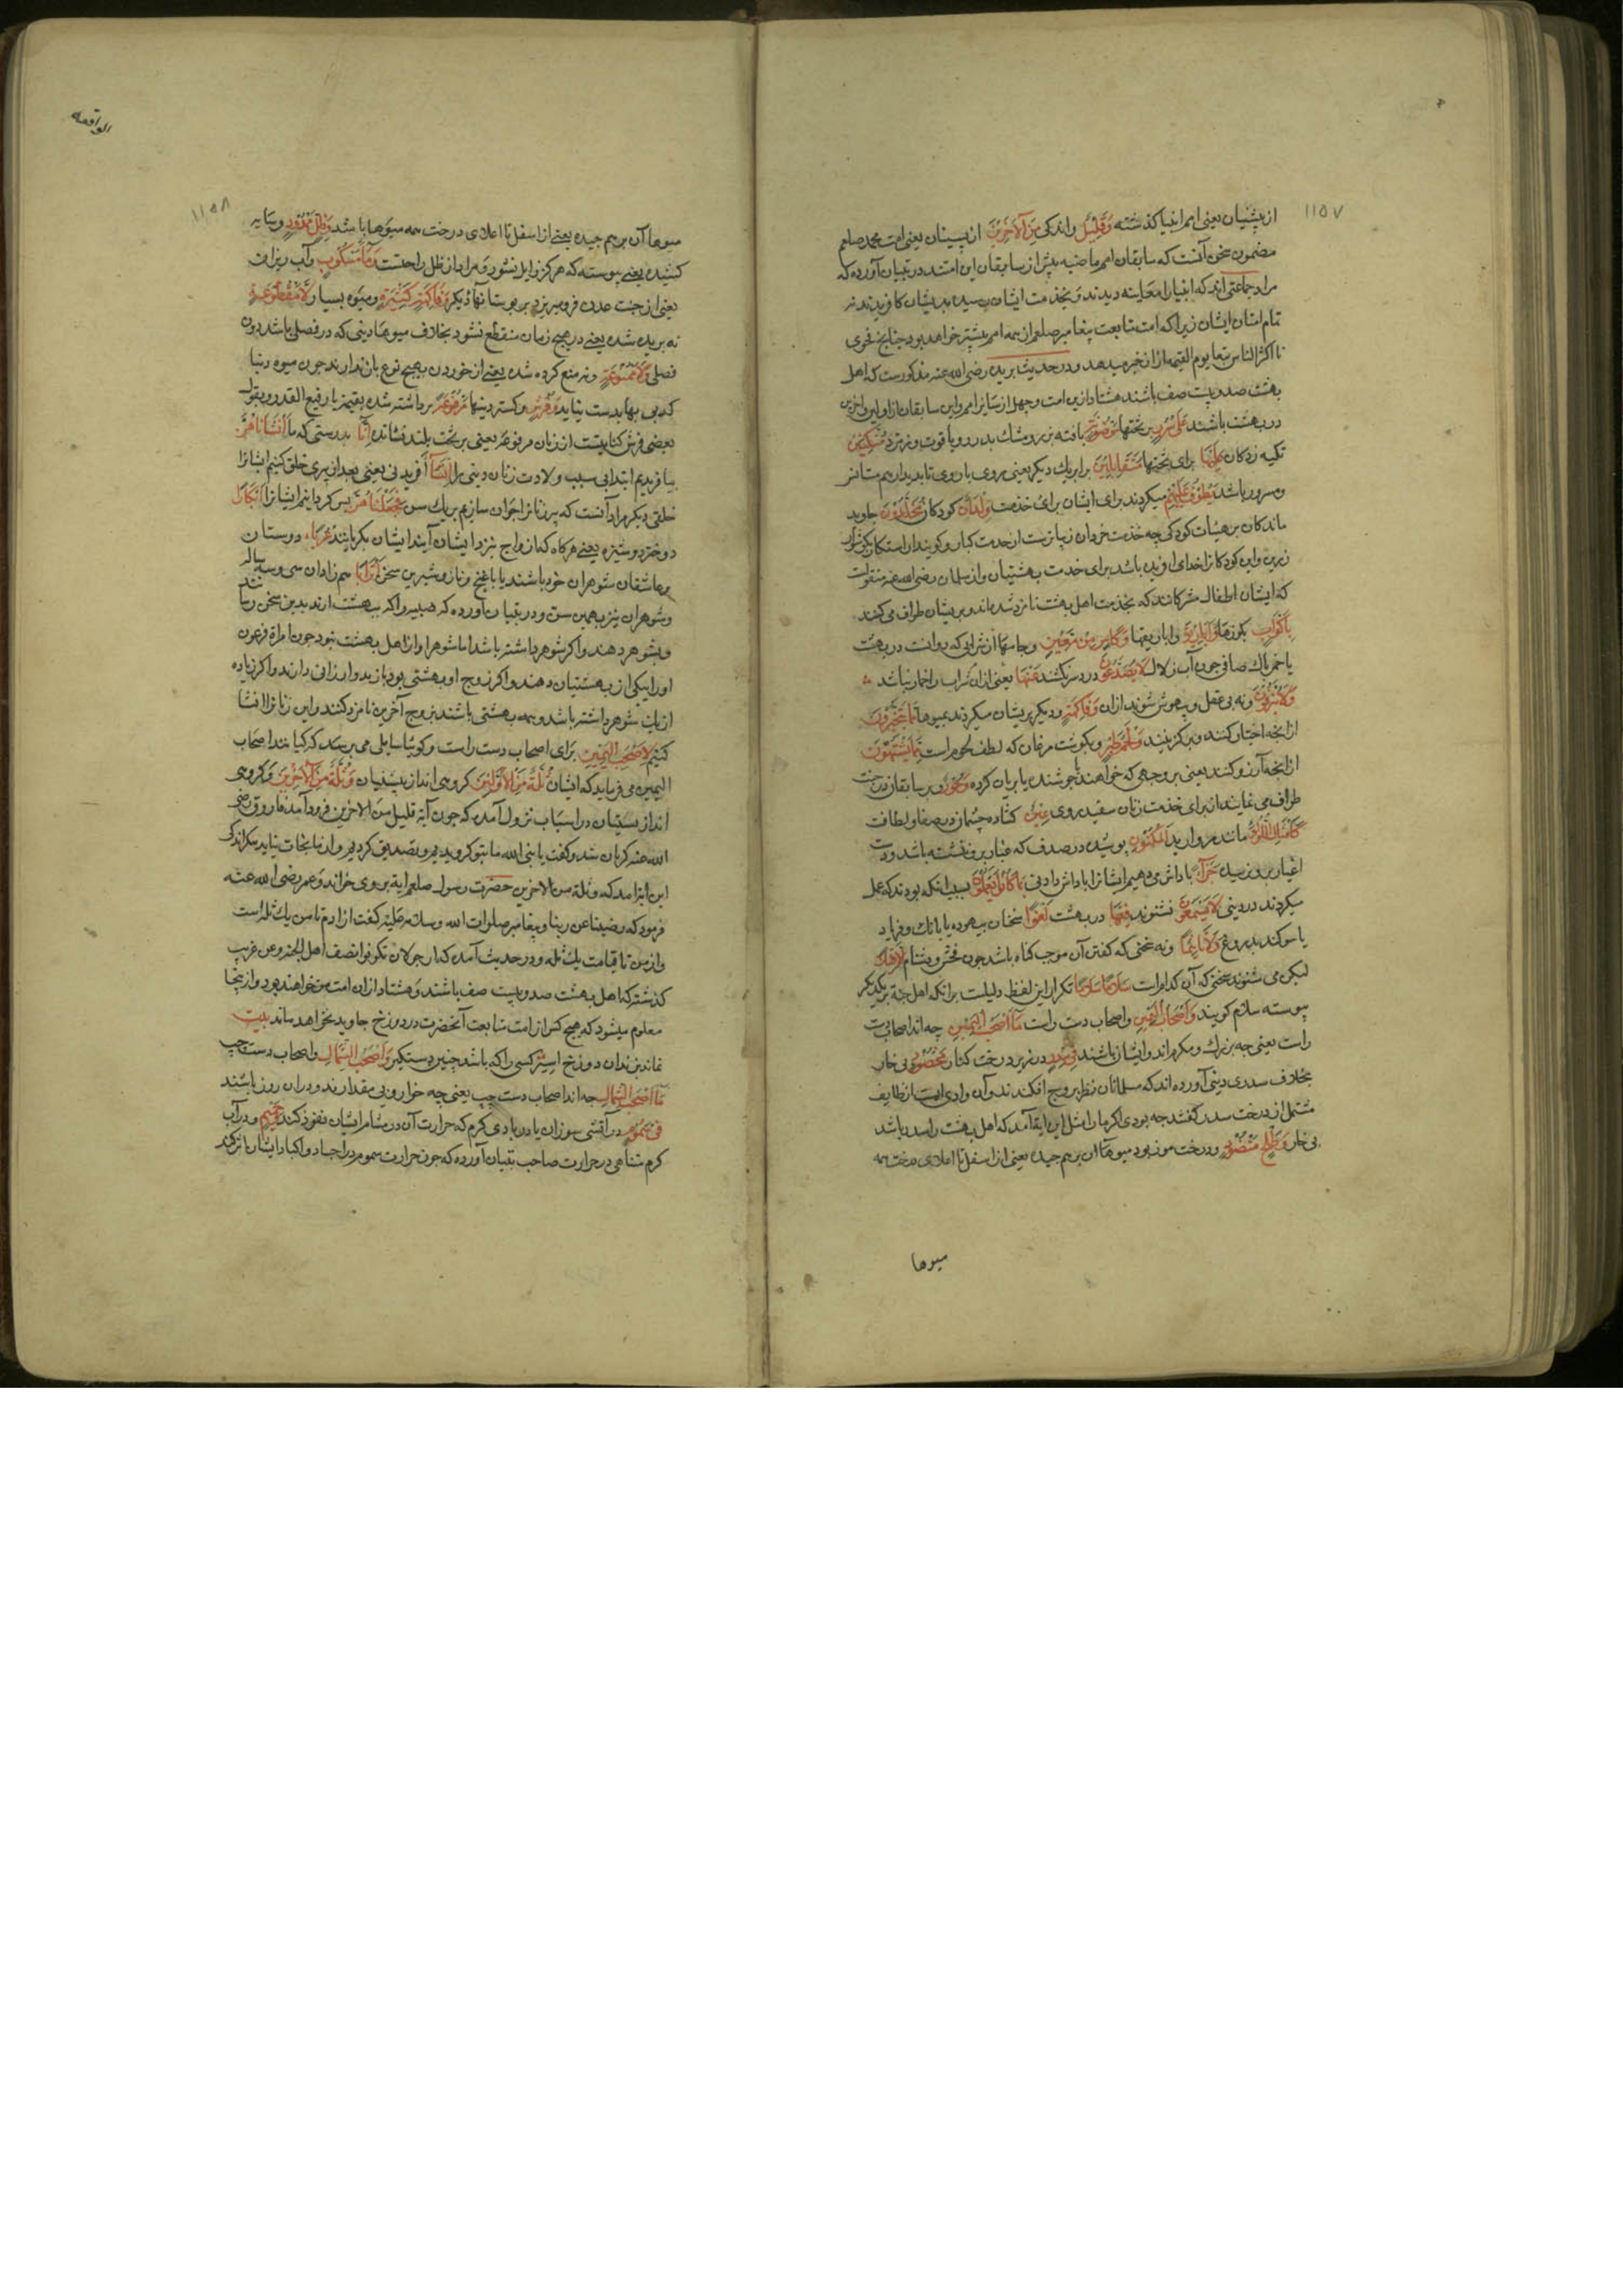 ۱۱۵۷
از پیشینان یعنی امم انبیا کذشته وَقَلِیلٌ واندکی مِنَ الْآخِرِینَ از پسینان یعنی امت محمد صلعم
مضمون سخن آنست که سابقان امم ماضیه بیش از سابقان این امتند در تبیان آورده که
مراد جماعتی اند که انبیا را معاینه دیدند و بخدمت ایشان رسیده بدیشان کرویدند نه
تمام امتان ایشان زیرا که امت متابعت پیغامبر صلعم از همه امم بیشتر خواهد بود چنانچ فحوی
انا اکثر الناس تبعا یوم القیمه ازان خبر میدهد و در حدیث بریده رضی الله عنه مذکورست که اهل
بهشت صد و بیست صف باشند هشتاد ازین امت و چهل از سایر امم و این سابقان از اولین و آخرین
در بهشت باشند عَلَی سُرُرٍ بر تختها مَوْضُونَةٍ بافته بزر و مشبک بدر و یاقوت و زبرجد مُتَّکِئِینَ
تکیه زدکان عَلَیْهَا برای تختها مُتَقَابِلِینَ برابر یکدیکر یعنی روی با روی تا بدیدار هم مستانس
و مسرور باشند یَطُوفُ عَلَیْهِمْ میکردند برای ایشان برای خدمت وِلْدَانٌ کودکان مُخَلَّدُونَ جاوید
ماندکان بر هیئات کودکی چه خدمت خردان زیباترست از خدمت کبار و کویند ازاستکان بکوشوار
زرین و این کودکانرا خدای آفریده باشد برای خدمت بهشتیان و از سلمان رضی الله عنه منقولست
که ایشان اطفال مشرکانند که بخدمت اهل بهشت نامزد شده اند و بر ایشان طواف می کنند
بِأَکْوَابٍ بکوزها وَأَبَارِیقَ وابریقها وَکَأْسٍ مِنْ مَعِینٍ و جامها از شرابی که روانست در بهشت
یا خمر پاک صافی چون آب زلال لَا یُصَدَّعُونَ درد سر نکشند عَنْهَا یعنی ازان شراب را خمار نباشد
وَلَا یُنْزِفُونَ و نه بی عقل و بیهوش شوند ازان وَفَاکِهَةٍ و دیکر بریشان میکردند بمیوها مِمَّا یَتَخَیَّرُونَ
از انجه اختیار کنند و برکزینند وَلَحْمِ طَیْرٍ و بکوشت مرغان که لطف لحوم است مِمَّا یَشْتَهُونَ
از انجه آرزو کنند یعنی بر وجهی که خواهند جوشنده یا بریان کرده وَحُورٌ و بر سابقان در جنت
طواف می نمایند از برای خدمت زنان سفید روی عِینٌ کشاده چشمان در صفا و لطافت
کَأَمْثَالِ اللُّؤْلُؤِ مانند مروارید الْمَکْنُونِ پوشیده در صدف که غبار برو ننشسته باشد و دست
اغیار بدو نرسیده جَزَاءً پاداش می دهیم ایشانرا پاداش دادنی بِمَا کَانُوا یَعْمَلُونَ بسبب انکه بودند که عمل
میکردند در دینی لَا یَسْمَعُونَ نشنوند فِیهَا در بهشت لَغْوًا سخنان بیهوده یا بانک و فریاد
یا سوکند بدروغ وَلَا تَأْثِیمًا و نه سخنی که کفتن آن موجب کناه باشد چون فحش و دشنام إِلَّا قِیلًا
لیکن می شنوند سخنی که آن کدام است سَلَامًا سَلَامًا تکرار این لفظ دلیلست برانکه اهل جنة بر یکدیکر
پیوسته سلام کویند وَأَصْحَابُ الْیَمِینِ و اصحاب دست راست مَا أَصْحَابُ الْیَمِینِ چه اند اصحاب دست
راست یعنی چه بزرک و مکرم اند و ایشان باشند فِی سِدْرٍ در زیر درخت کنار مَخْضُودٍ بی خار
بخلاف سدری دینی آورده اند که مسلمانان نظر بر وج افکندند و آن وادی است از طایف
مشتمل از درخت سدر کفتند چه بودی اکر ما را مثل این ایة آمد که اهل بهشت را سدر باشد
بی خار وَطَلْحٍ مَنْضُودٍ و درخت موز بود میوها آن بر هم چیده یعنی از اسفل تا اعلای درخت همه
میوها
الواقعه
۱۱۵۸
میوها آن بر هم چیده یعنی از اسفل تا اعلای درخت همه میوها باشد وَظِلٍّ مَمْدُودٍ و سایه
کشیده یعنی پیوسته که هرکز زایل نشود و مراد از ظل راحتست وَمَاءٍ مَسْکُوبٍ و آب ریزان
یعنی از جنت عدن فرو میریزد بر بوستانهای دیکر وَفَاکِهَةٍ کَثِیرَةٍ و میوه بسیار لَا مَقْطُوعَةٍ
نه بریده شده یعنی در هیچ زمان منقطع نشود بخلاف میوهای دینی که در فصلی باشد دون
فصلی وَلَا مَمْنُوعَةٍ و نه منع کرده شده یعنی از خوردن بهیچ نوع باز ندارند چون میوه دنیا
که بی بها بدست نیاید وَفُرُشٍ و کستردنیها مَرْفُوعَةٍ برداشته شده بقیمت یا رفیع القدر و بقول
بعضی فرش کنایتست از زنان مرفوعة یعنی بر تخت بلند نشانده إِنَّا بدرستی که ما أَنْشَأْنَاهُنَّ
بیافریدیم ابتدایی سبب ولادت زنان دینی را إِنْشَاءً آفریدنی یعنی بعد از پیری خلق کنیم ایشانرا
خلقی دیکر مراد آنست که پیر زنانرا جوان سازیم بریک سن فَجَعَلْنَاهُنَّ پس کردانیم ایشانرا أَبْکَارًا
دختر دوشیزه یعنی هرکاه که ازواج بنزد ایشان آیند ایشان بکر باشند عُرُبًا دوستان
و عاشقان شوهران خود باشند یا با غنج و ناز و شیرین سخن أَتْرَابًا هم زادان سی و سه ساله
و شوهران نیز بهمین سن و در تبیان آورده که صبیه را که ببهشت ارند بدین سخن رسانند
و بشوهر دهند و اکر شوهر داشته باشد اما شوهر او از اهل بهشت نبود چون امراة فرعون
او را بیکی از بهشتیان دهند و اکر زوج او بهشتی بود باز بدو ارزانی دارند و اکر زیاده
از یک شوهر داشته باشد و همه بهشتی باشند بزوج آخرین نامزد کنند و این زنانرا انشا
کنیم لِأَصْحَابِ الْیَمِینِ برای اصحاب دست راست و کوئیا سایلی می پرسد که کیانند اصحاب
الیمین می فرماید که ایشان ثُلَّةٌ مِنَ الْأَوَّلِینَ کروهی اند از پیشینیان وَثُلَّةٌ مِنَ الْآخِرِینَ و کروهی
اند از پسینیان در اسباب نزول آمده که چون آیة قلیل من الاخرین فرود آمد فاروق رضی
الله عنه کریان شد و کفت یا بنی الله ما بتو کرویدیم و تصدیق کردیم و از ما نجات نیاید مکر اندکی
این ایة آمد که و ثلة من الاخرین حضرت رسول صلعم ایة بروی خواند و عمر رضی الله عنه
فرمود که رضینا عن ربنا و پیغامبر صلوات الله و سلامه علیه کفت از ادم تا من یک ثله است
و از من تا قیامت یک ثله و در حدیث آمده که ارجو لان تکونوا نصف اهل الجنه و عن قریب
کذشت که اهل بهشت صد و بیست صف باشند و هشتاد ازان امت من خواهند بود و از اینجا
معلوم میشود که هیچ کس از امت متابعت آنحضرت در دوزخ جاوید نخواهد ماند بیت
نماند بزندان دوزخ اسیر کسی را که باشد چنین دستکیر وَأَصْحَابُ الشِّمَالِ و اصحاب دست چپ
مَا أَصْحَابُ الشِّمَالِ چه اند اصحاب دست چپ یعنی چه خوار و بی مقدارند و دران روز باشند
فِی سَمُومٍ در آتشی سوزان یا در بادی کرم که حرارت آن در مشام ایشان نفوذ کند وَحَمِیمٍ و در آب
کرم متناهی در حرارت صاحب تبیان آورده که چون حرارت سموم در اجساد و اکباد ایشان اثر کند